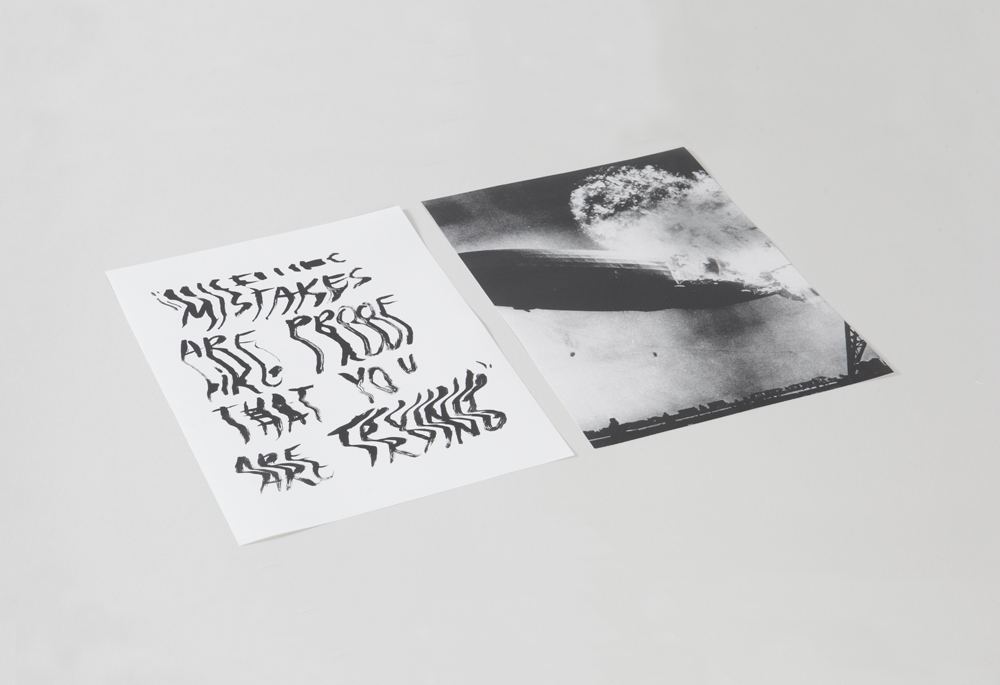 "MISTAKES
ARE PROOF
THAT YOU
ARE TRYING"